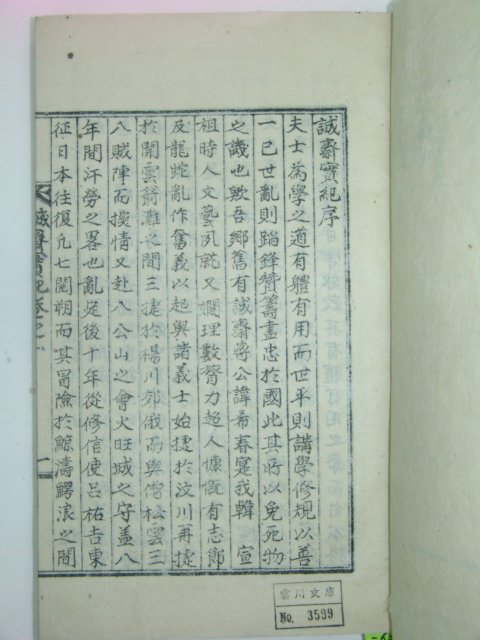 誠齋實紀序
夫士爲學之道有體有用而世平則講學修規以善
一己世亂則蹈鋒贊籌盡忠於國此其所以免死物
之譏也歟吾鄕舊有誠齋蔣公諱希春寔我韓 宣
祖時人文藝夙就又嫺理數膂力超人慷慨有志節
及龍蛇亂作奮義以起與諸義士始捷於汶川再捷
於開雲箭灘之間三捷於楊川郊俄而與僧松雲三
入賊陣而探情又赴八公山之會火旺城之守盖八
年間汗勞之畧也亂定後十年從修信使呂祐吉東
征日本往復凡七閱朔而其冒險於鯨濤鰐浪之間
誠齋實紀卷之一
一
雲川文庫
No. 3599